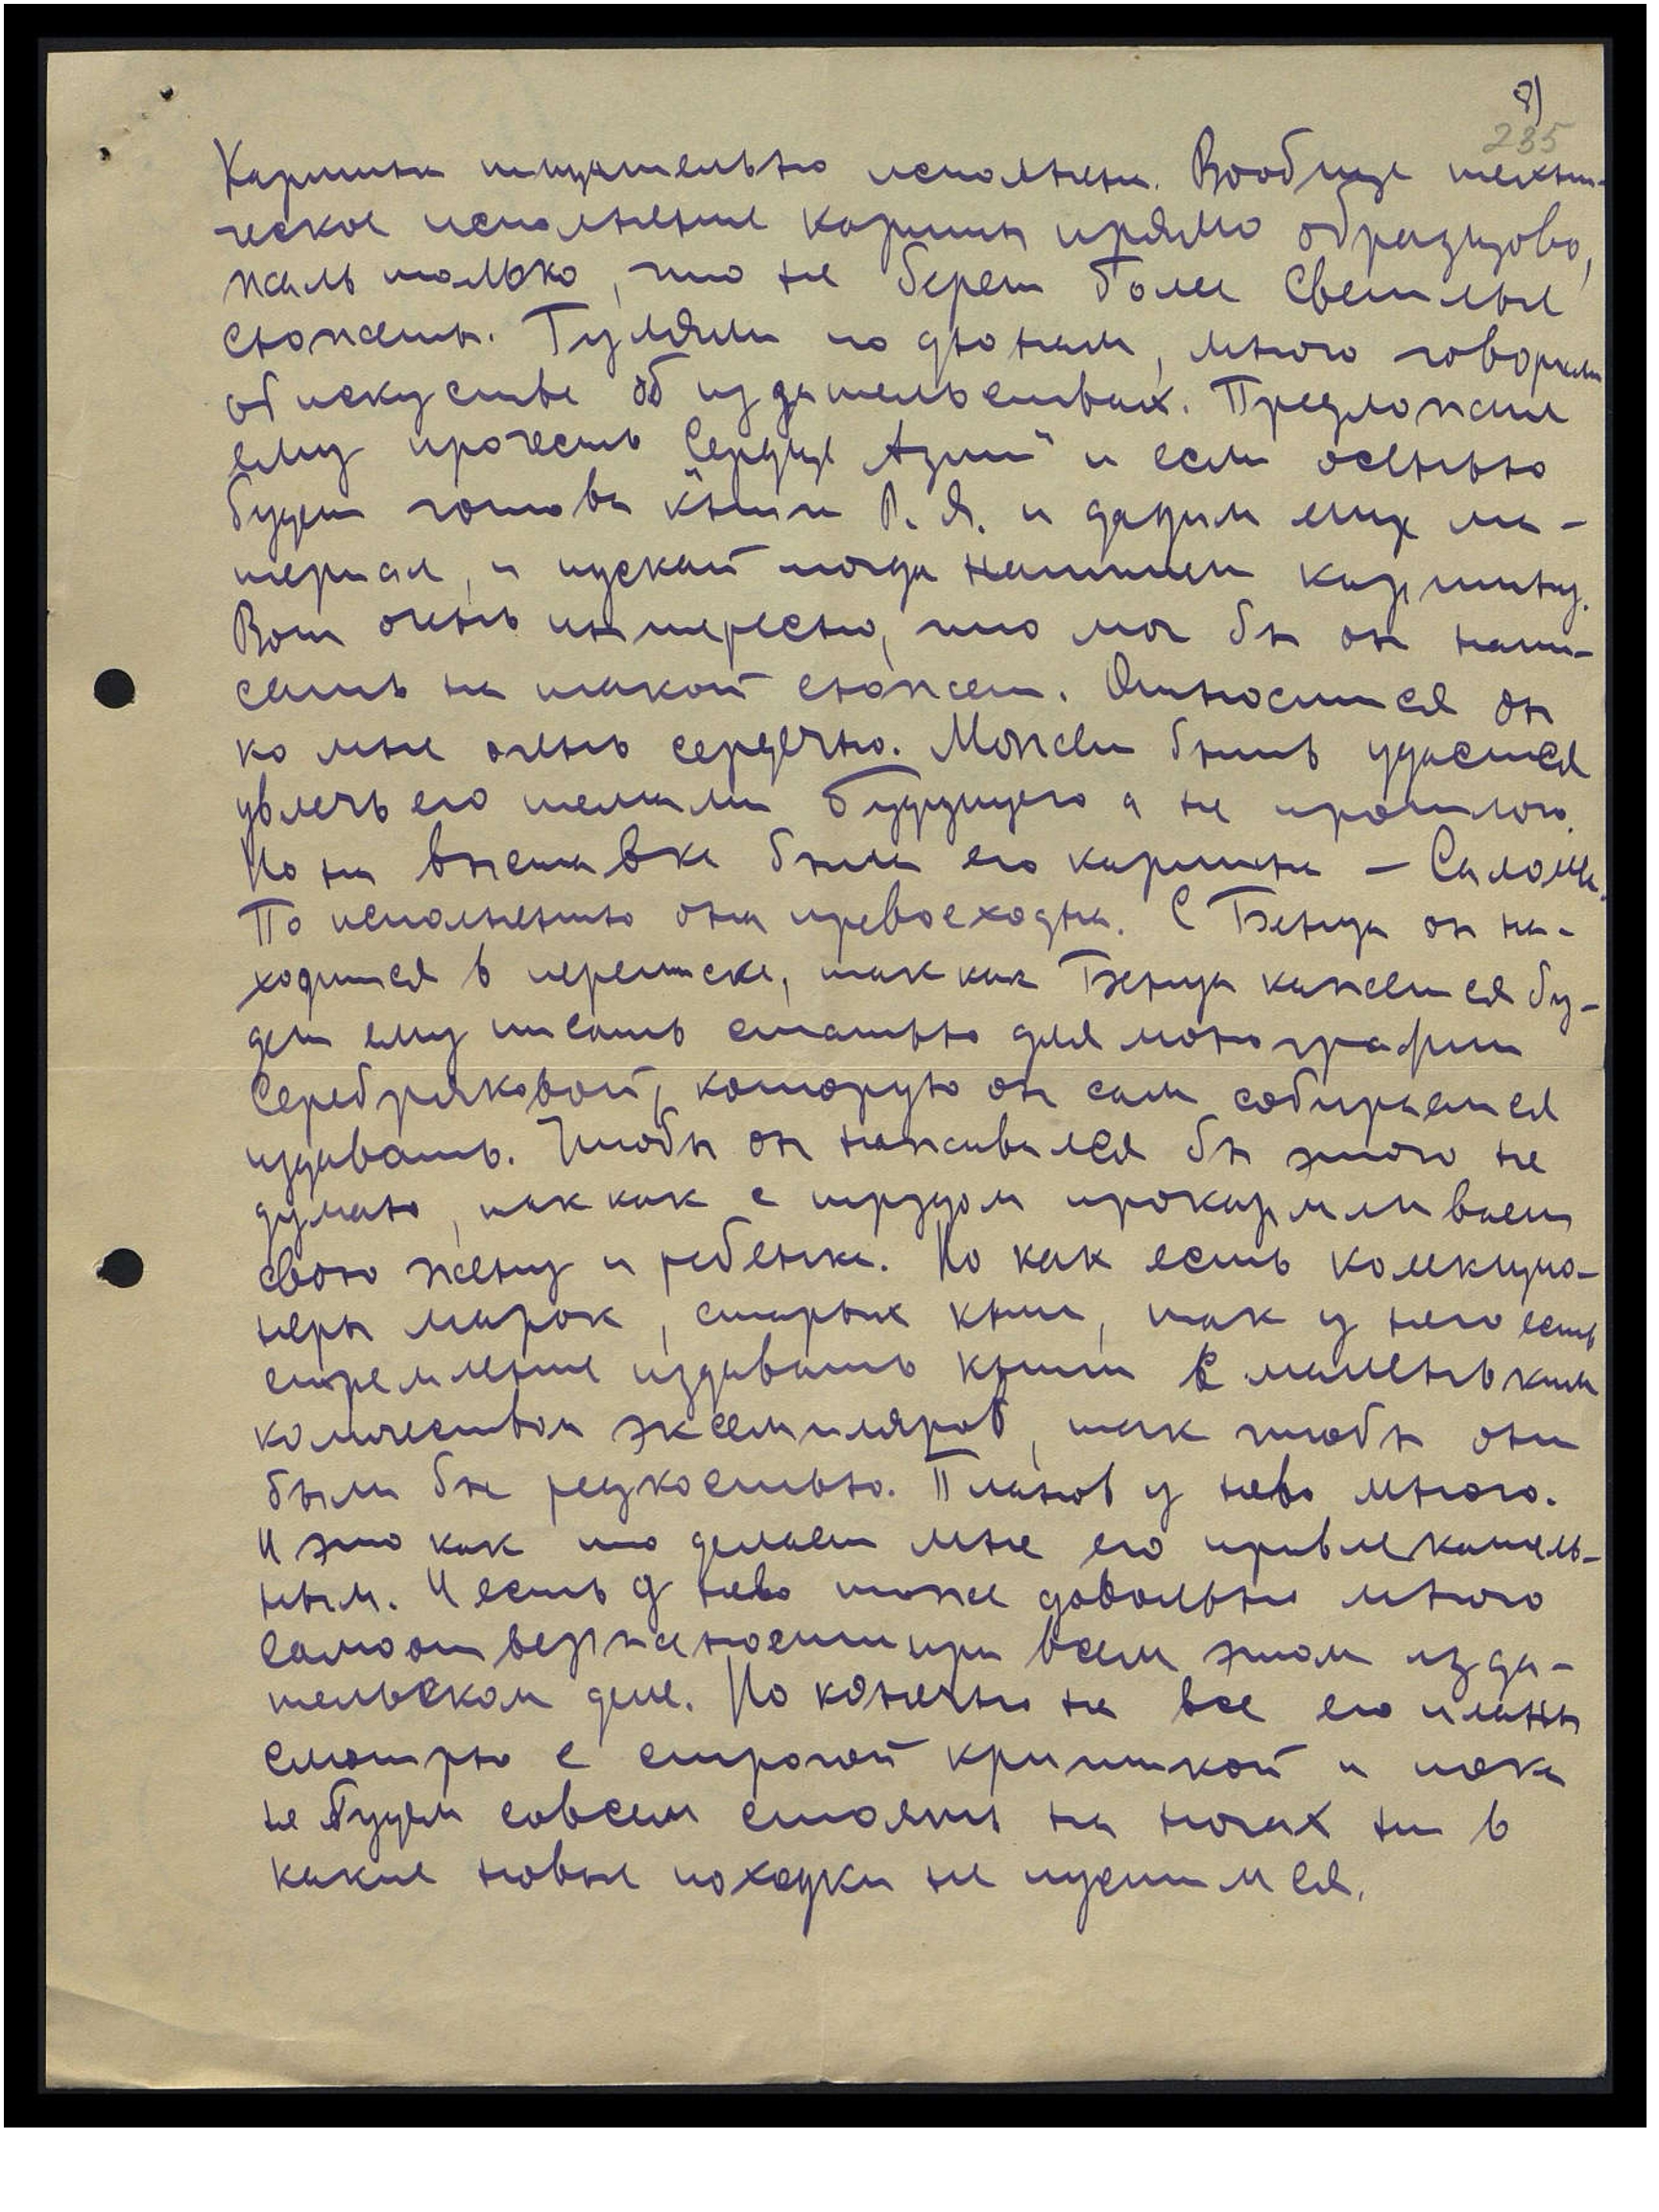 8)
235
Картины тщательно исполнены. Вообще техни-
ческое исполнение картин прямо образцово,
жаль только, что не берет более светлые
сюжеты. Гуляли по дюнам, много говорили
об искустве об издательствах. Предложил
ему прочесть „Сердце Азии" и если осенью
будет готова книга Р. Я. и дадим ему ма-
териал, и пускай тогда напишет картину.
Вот очень интересно, что мог бы он напи-
сать на такой сюжет. Относится он
ко мне очень сердечно. Может быть удастся
увлечь его темами будущего а не прошлого.
Но на выставке были его картина — Саломея.
По исполнению она превосходна. С Бенуа он на-
ходится в переписке, так как Бенуа кажется бу-
дет ему писать статью для монографии
Серебряковой, которую он сам собирается
издавать. Чтобы он наживался бы этого не
думаю, так как с трудом прокармливает
свою жену и ребенка. Но как есть колекцио-
неры марок, старых книг, так у него есть
стремление издавать книги в маленьким
количеством экземпляров, так чтобы они
были бы редкостью. Планов у нево много.
И это как то делает мне его привлекатель-
ным. И есть у нево тоже довольно много
самоотверженности при всем этом изда-
тельском деле. Но конечно на все его планы
смотрю с строгой критикой и пока
не будем совсем стоять на ногах ни в
какие новые походки не пустимся.